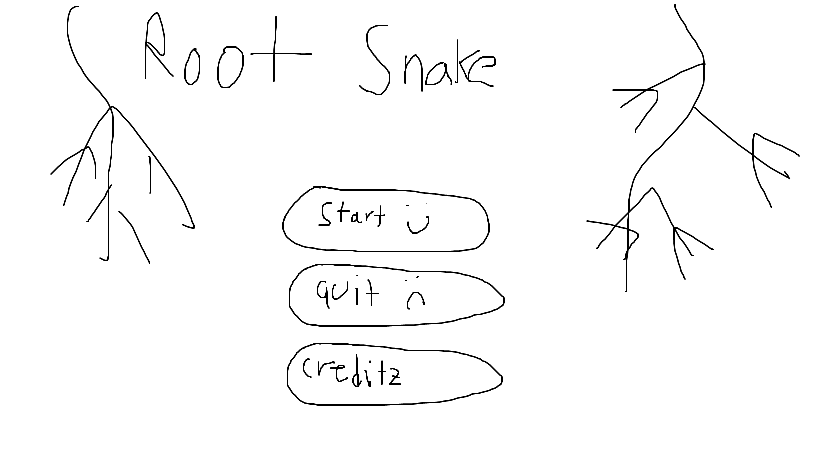 Root Snake
Start :)
quit :(
creditz